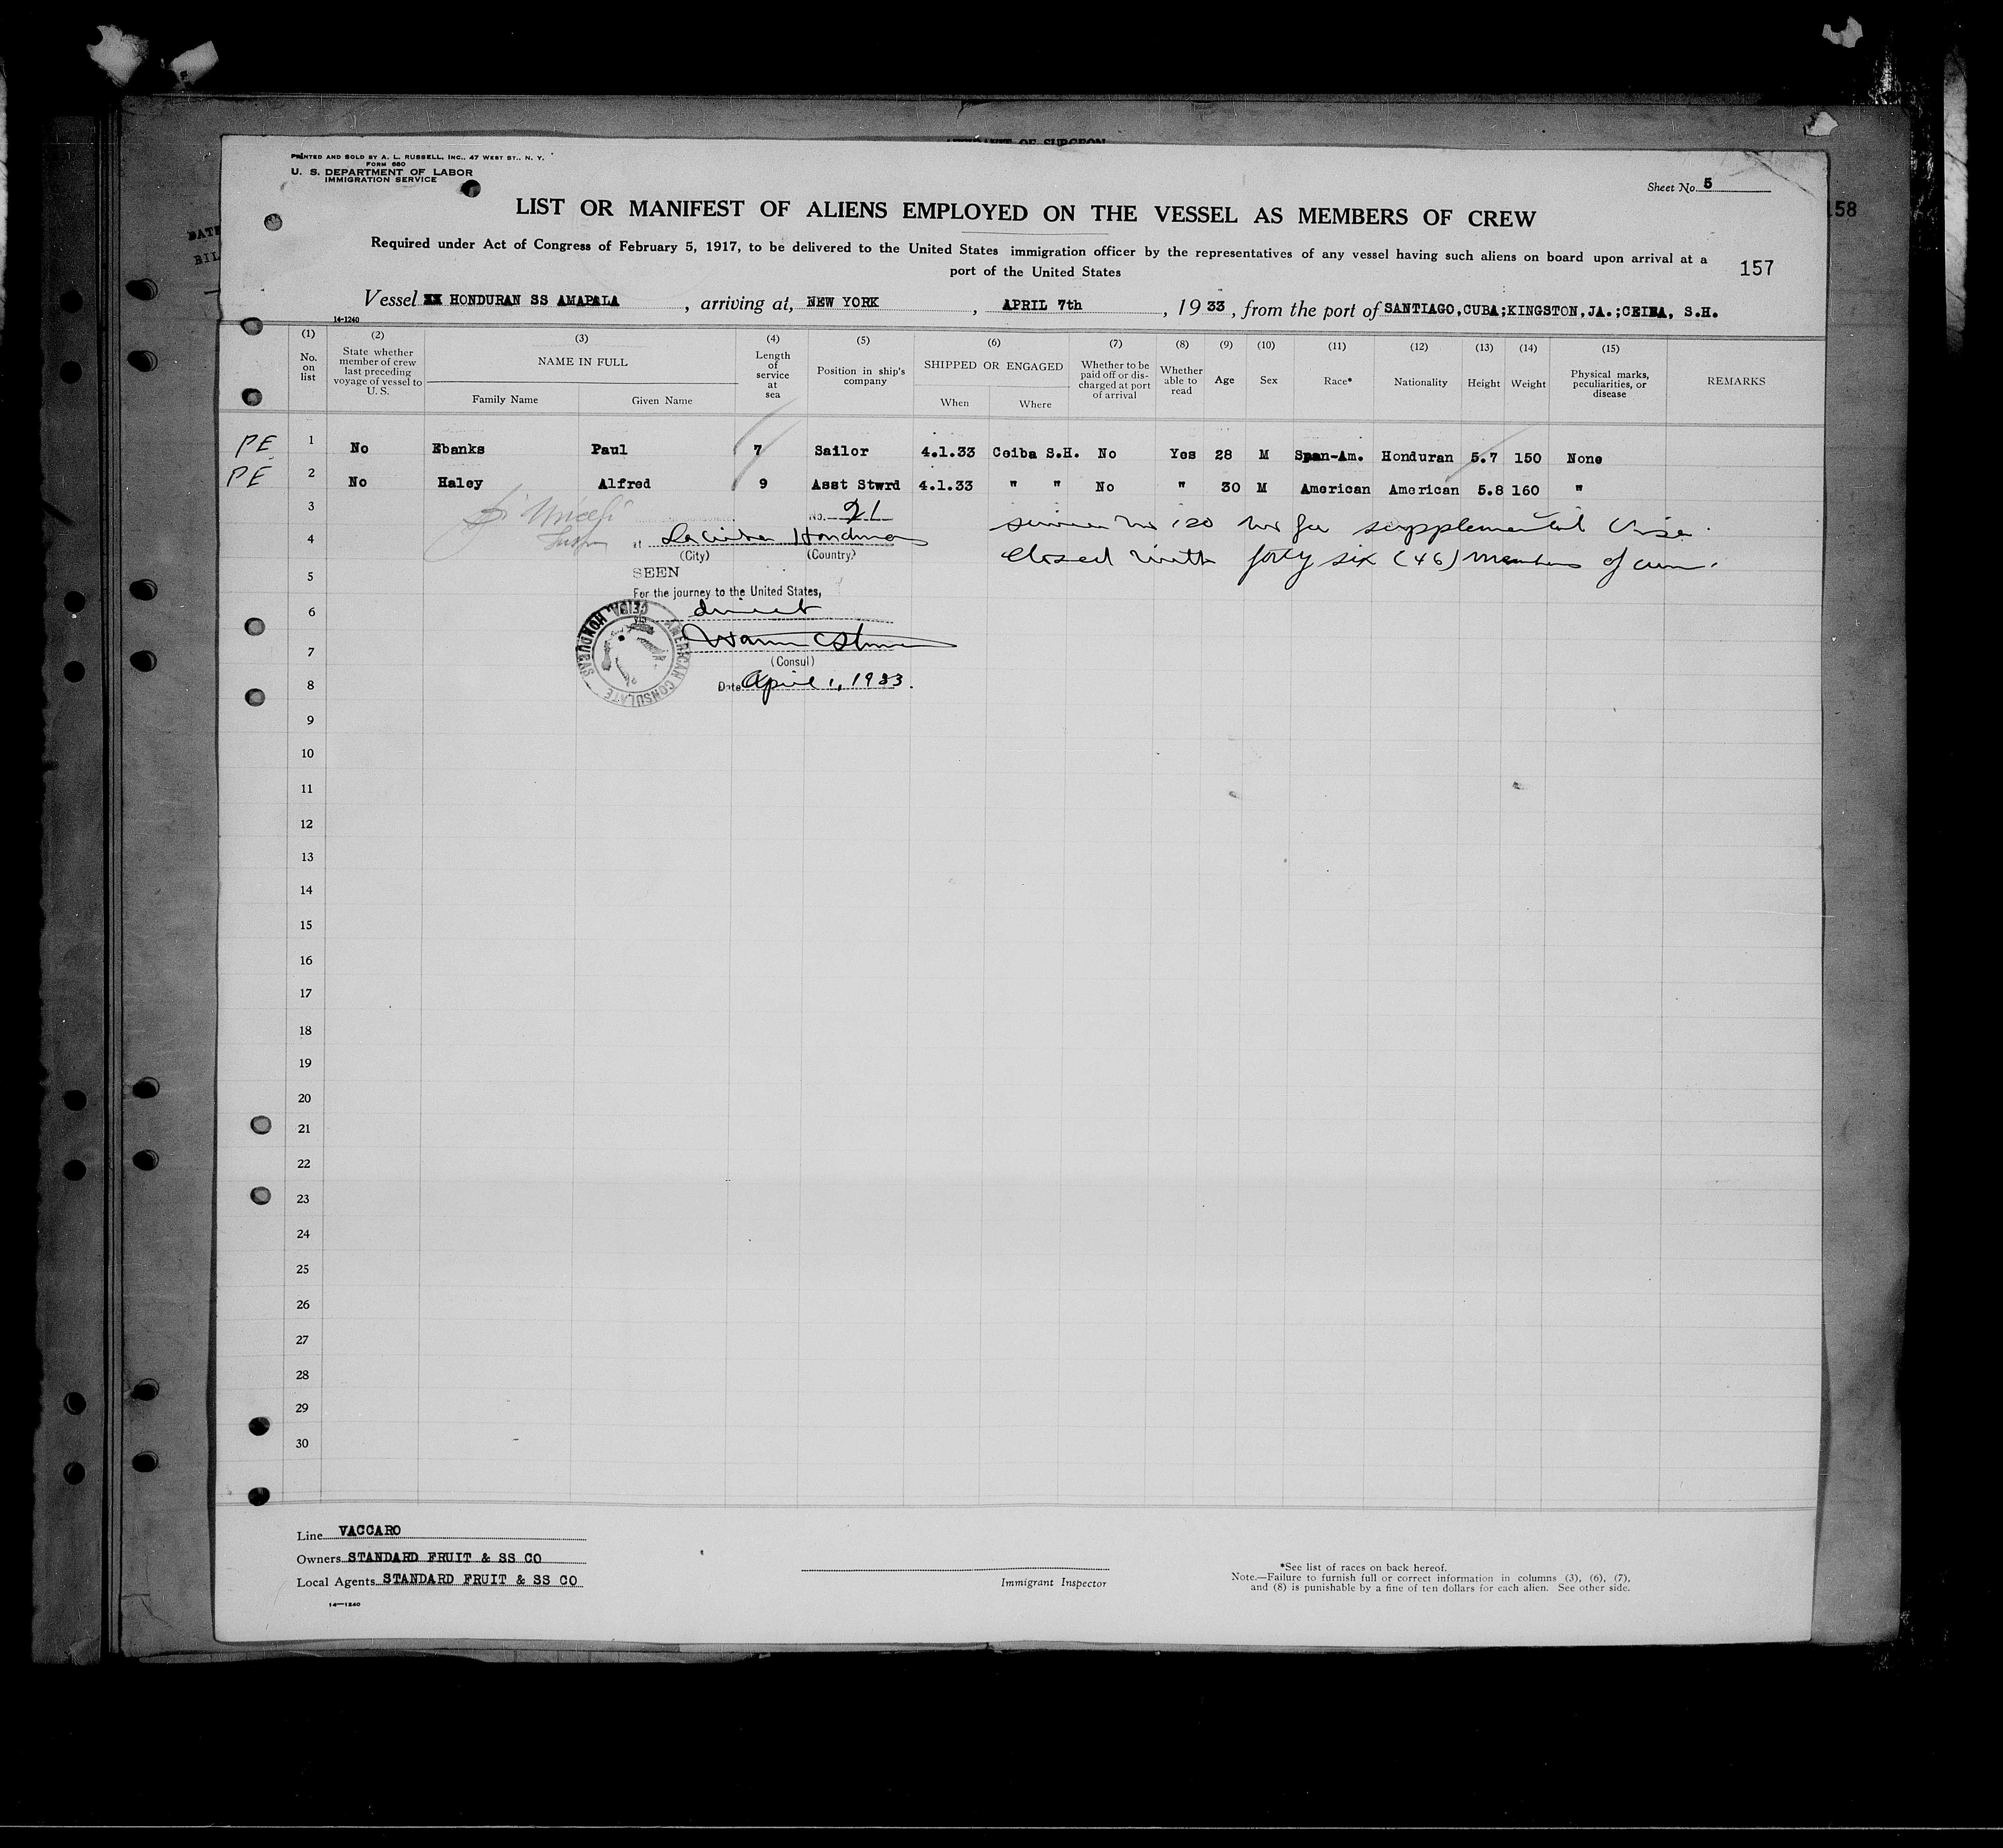 AFFIDAVIT OF SURGEON
PRINTED AND SOLD BY A. L. RUSSELL, INC., 47 WEST ST., N. Y.
FORM 680
U. S. DEPARTMENT OF LABOR
IMMIGRATION SERVICE
Sheet No. 5
158
LIST OR MANIFEST OF ALIENS EMPLOYED ON THE VESSEL AS MEMBERS OF CREW
Required under Act of Congress of February 5, 1917, to be delivered to the United States immigration officer by the representatives of any vessel having such aliens on board upon arrival at a
port of the United States
157
Vessel XX HONDURAN SS AMAPALA, arriving at, NEW YORK, APRIL 7th, 1933, from the port of SANTIAGO,CUBA;KINGSTON,JA.;CEIBA, S.H.
14-1240
(1) No. on list (2) State whether member of crew last preceding voyage of vessel to U. S. (3) NAME IN FULL Family Name Given Name (4) Length of service at sea (5) Position in ship's company (6) SHIPPED OR ENGAGED When Where (7) Whether to be paid off or discharged at port of arrival (8) Whether able to read (9) Age (10) Sex (11) Race* (12) Nationality (13) Height (14) Weight (15) Physical marks, peculiarities, or disease REMARKS
PE 1 No Ebanks Paul 7 Sailor 4.1.33 Ceiba S.H. No Yes 28 M Span-Am. Honduran 5.7 150 None
PE 2 No Haley Alfred 9 Asst Stwrd 4.1.33 " " No " 30 M American American 5.8 160 "
3 No. 21
supplemental visa
4 at La Ceiba Honduras
(City) (Country)
closed with forty six (46) members of crew.
5 SEEN
For the journey to the United States,
6 direct
7
(Consul)
8 Date April 1, 1933.
AMERICAN CONSULATE CEIBA, HONDURAS
9
10
11
12
13
14
15
16
17
18
19
20
21
22
23
24
25
26
27
28
29
30
Line VACCARO
Owners STANDARD FRUIT & SS CO
Local Agents STANDARD FRUIT & SS CO
14-1240
Immigrant Inspector
*See list of races on back hereof.
Note.—Failure to furnish full or correct information in columns (3), (6), (7),
and (8) is punishable by a fine of ten dollars for each alien. See other side.